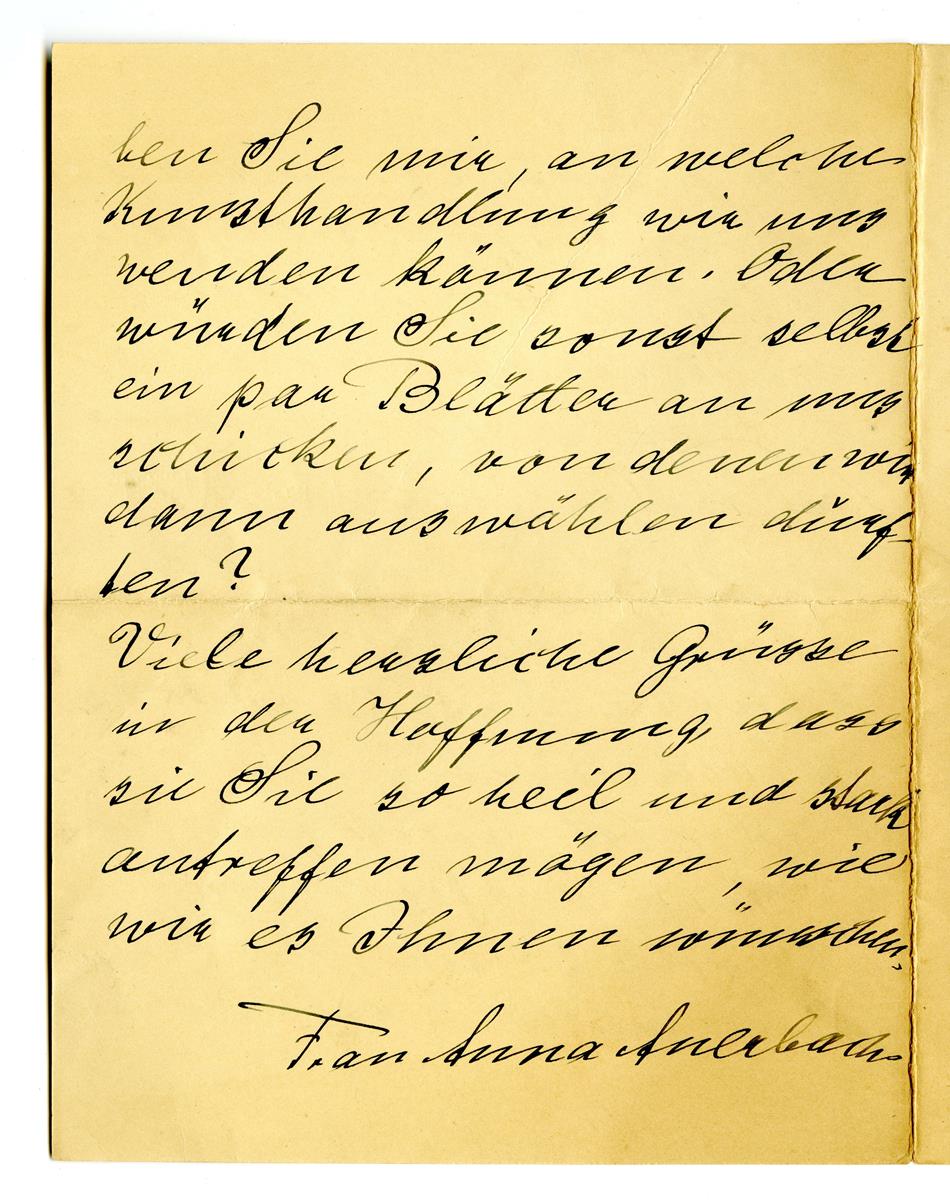 ben Sie mir, an welche
Kunsthandlung wir uns
wenden können. Oder
würden Sie sonst selbst
ein par Blätter an uns
schicken, von denen wir
dann auswählen dürf-
ten?
Viele herzliche Grüsse
in der Hoffnung, dass
sie Sie so heil und stark
antreffen mögen, wie
wir es Ihnen wünschen.
Frau Anna Auerbach.